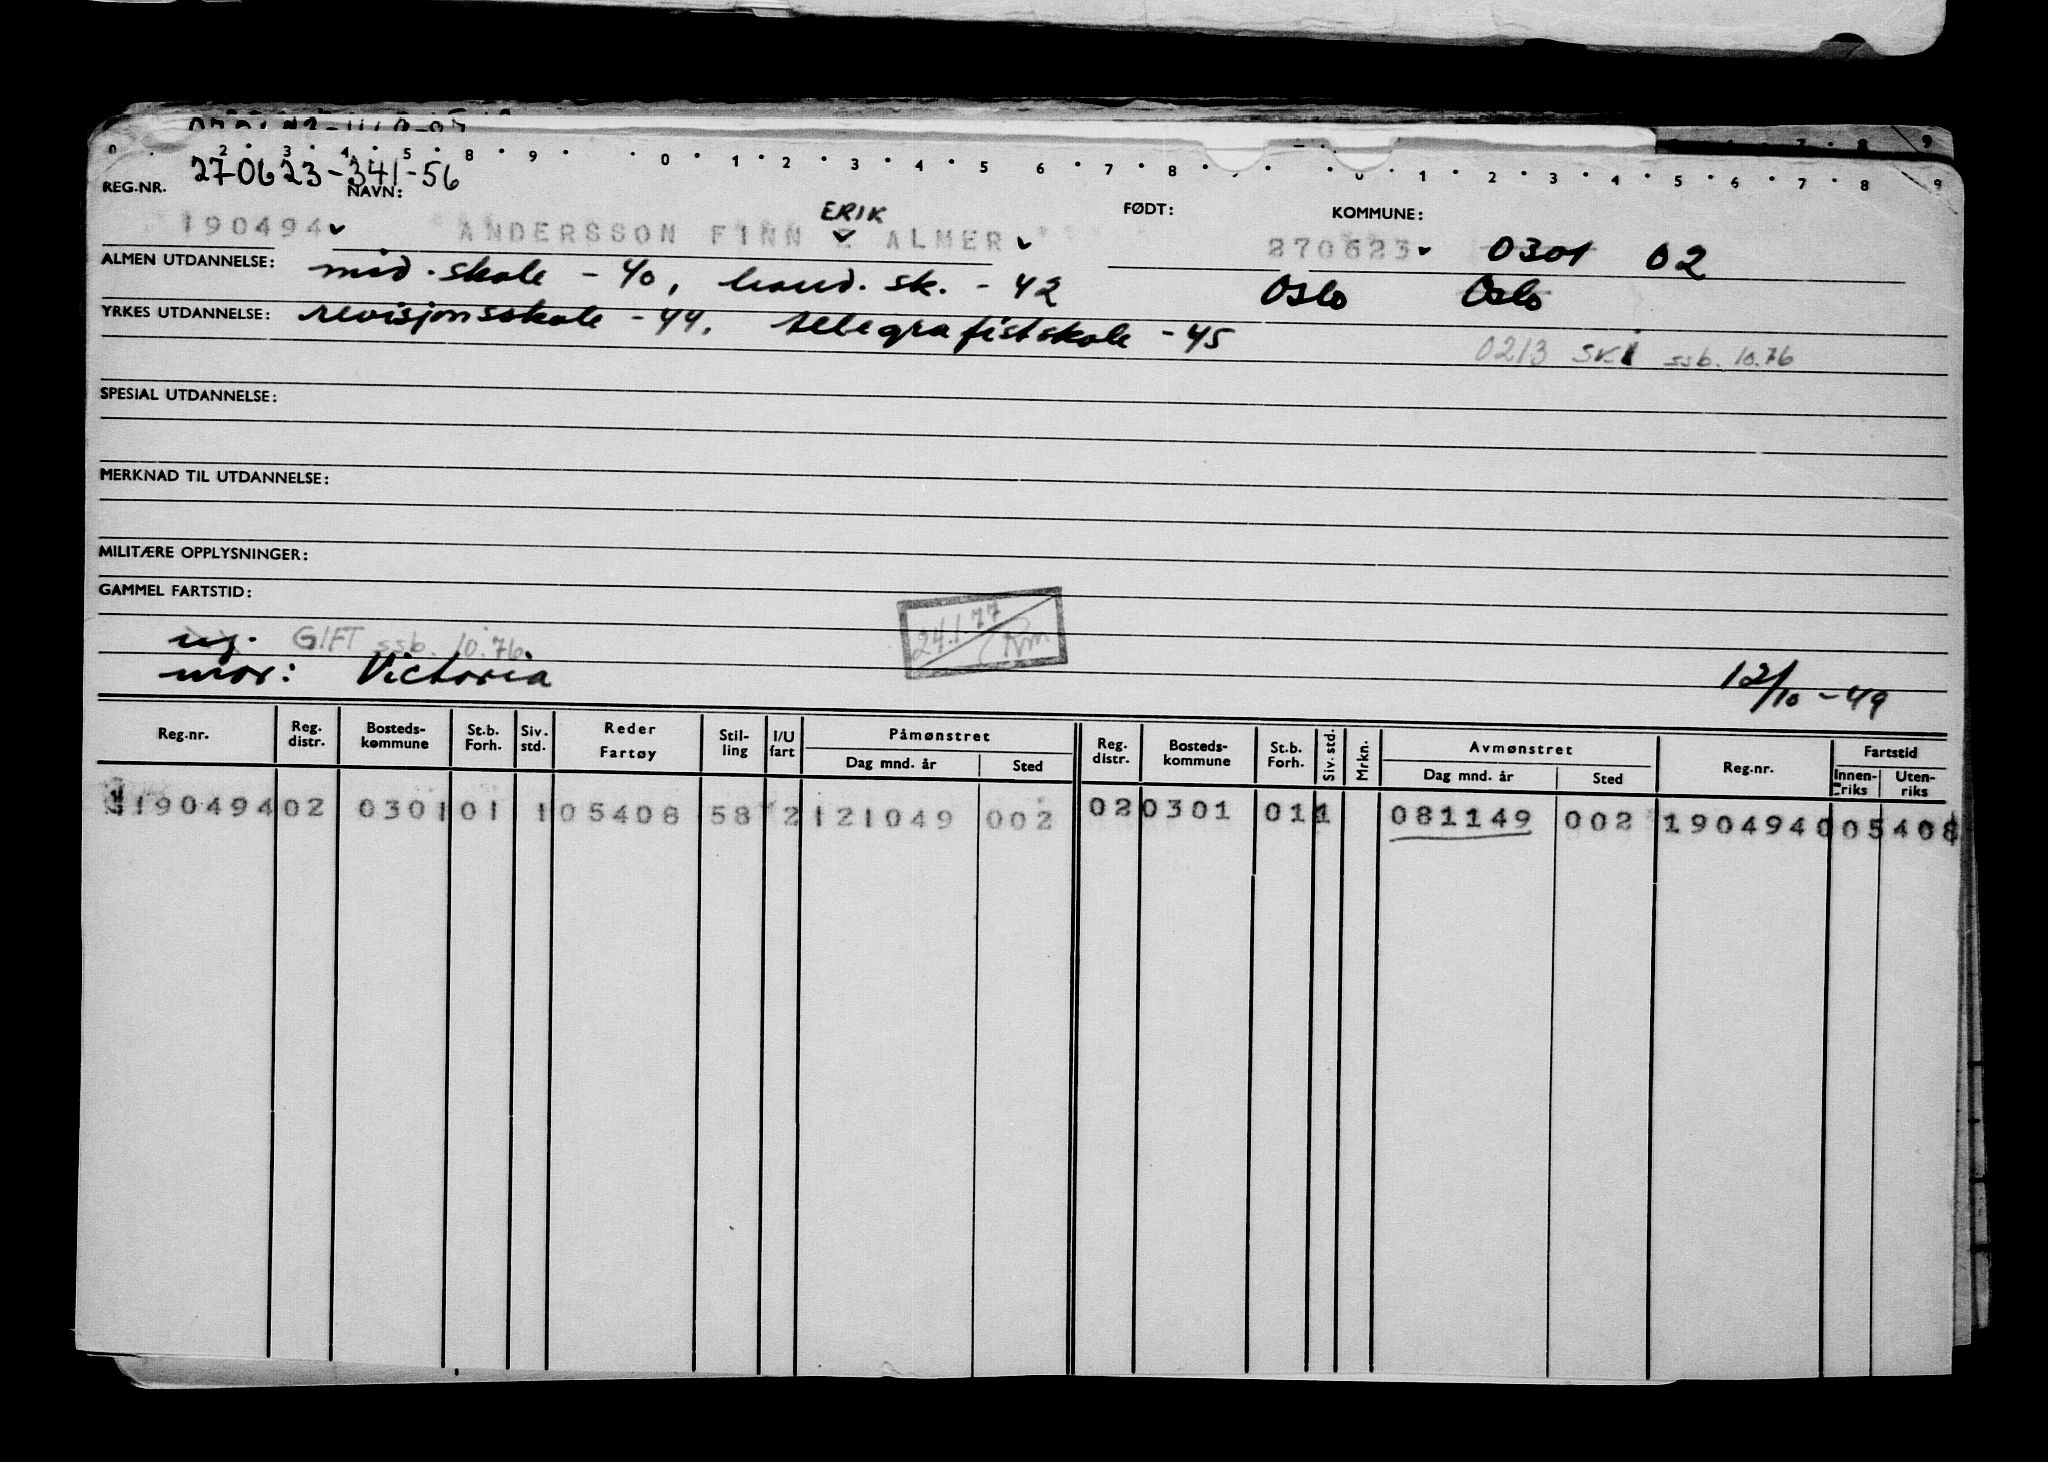 270623-341-56
REG.NR. NAVN: FØDT: KOMMUNE:
ERIK
190494 ANDERSSON FINN E ALMER 270623 0301 02
ALMEN UTDANNELSE: mid.skole -40, hand.sk. -42 Oslo Oslo
YRKES UTDANNELSE: revisjonsskole -44. telegrafistskole -45
0213 SKI ssb. 10.76
SPESIAL UTDANNELSE:
MERKNAD TIL UTDANNELSE:
MILITÆRE OPPLYSNINGER:
GAMMEL FARTSTID:
24.1.77
ug. GIFT ssb. 10.76
mor: Victoria 12/10-49
Reg.nr. Reg. distr. Bosteds-kommune St.b. Forh. Siv. std. Reder Fartøy Stil-ling I/U fart Påmønstret Dag mnd. år Sted Reg. distr. Bosteds-kommune St.b. Forh. Siv. std. Mrkn. Avmønstret Dag mnd. år Sted Reg.nr. Fartstid Innen-riks Uten-riks
190494 02 0301 01 1 05408 58 2 121049 002 02 0301 01 1 081149 002 1904940 05408